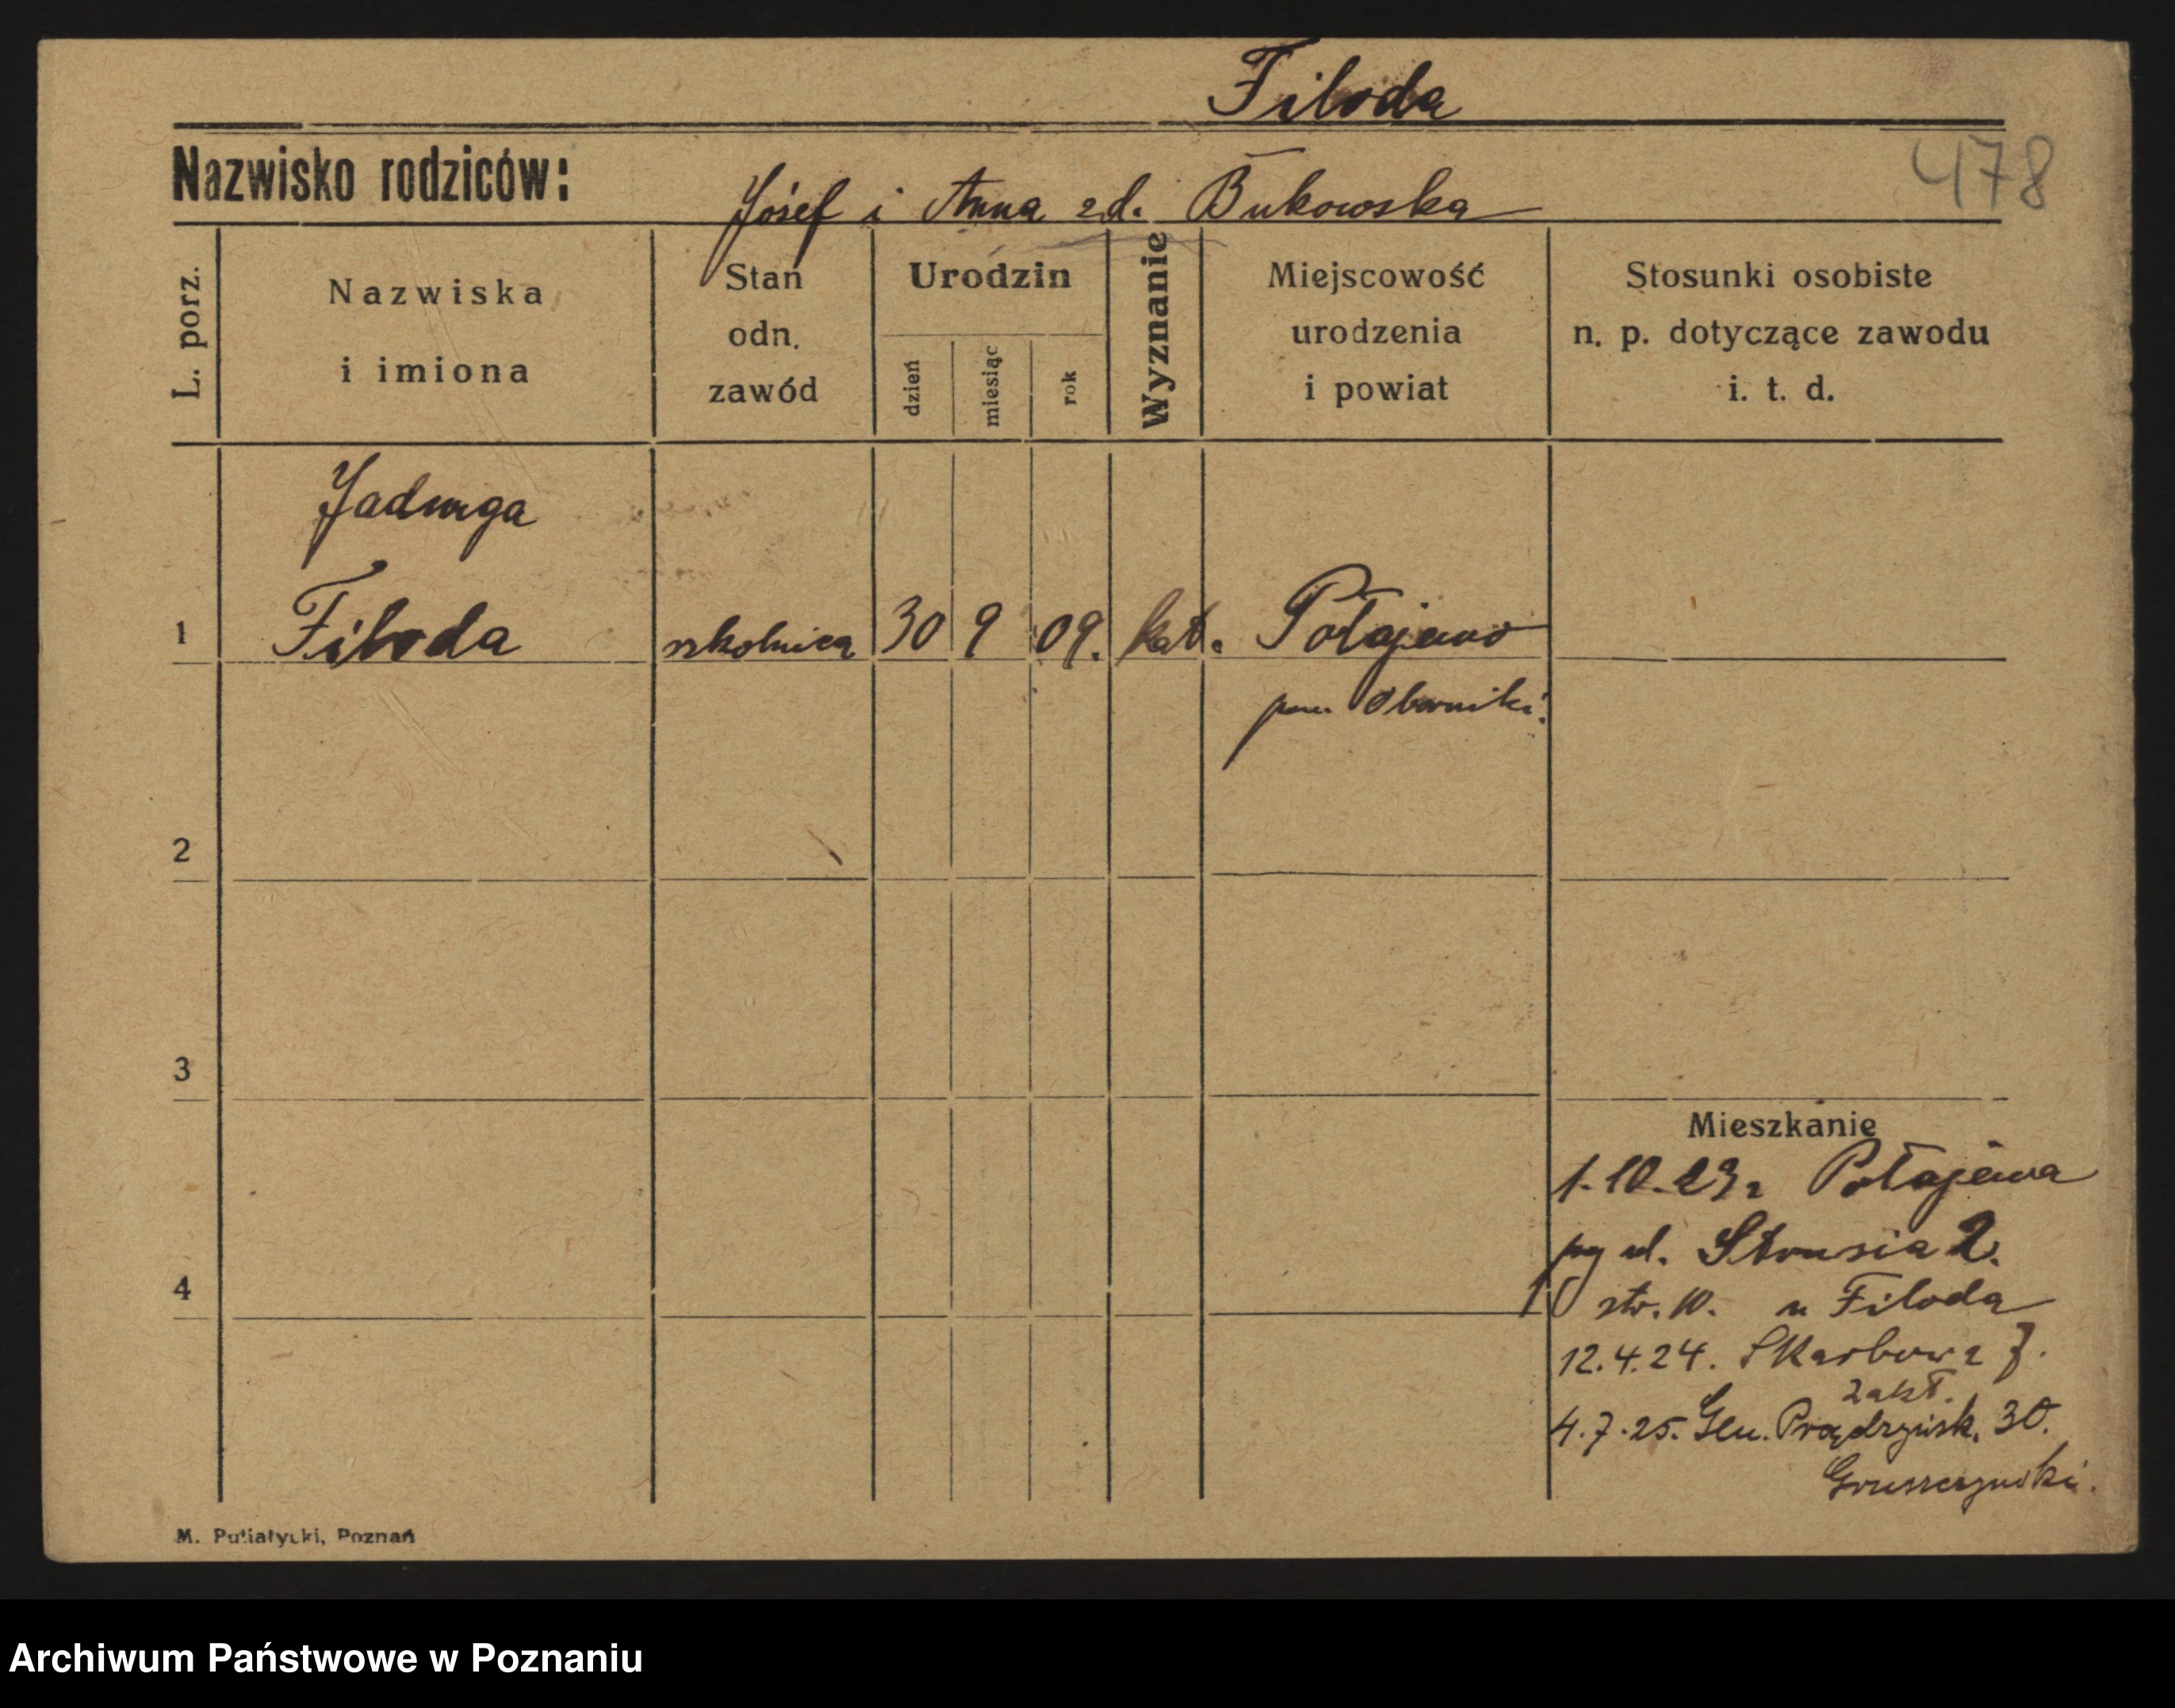 Filoda
478
Nazwisko rodziców:
Józef i Anna zd. Bukowska
L. porz.
Nazwiska
i imiona
Stan
odn.
zawód
Urodzin
dzień
miesiąc
rok
Wyznanie
Miejscowość
urodzenia
i powiat
Stosunki osobiste
n. p. dotyczące zawodu
i. t. d.
Jadwiga
1 Filoda szkolnica 30 9 09. kat. Połajewo
pow Oborniki.
2
3
Mieszkanie
1.10.23 z Połajewa
ul. Strusia 2.
4
str. 10. u Filoda
12.4.24. Skarbowa 7.
zakł.
4.7.25. Gen. Prądzyńsk. 30.
Gruszczyński.
M. Putiatycki, Poznań
Archiwum Państwowe w Poznaniu